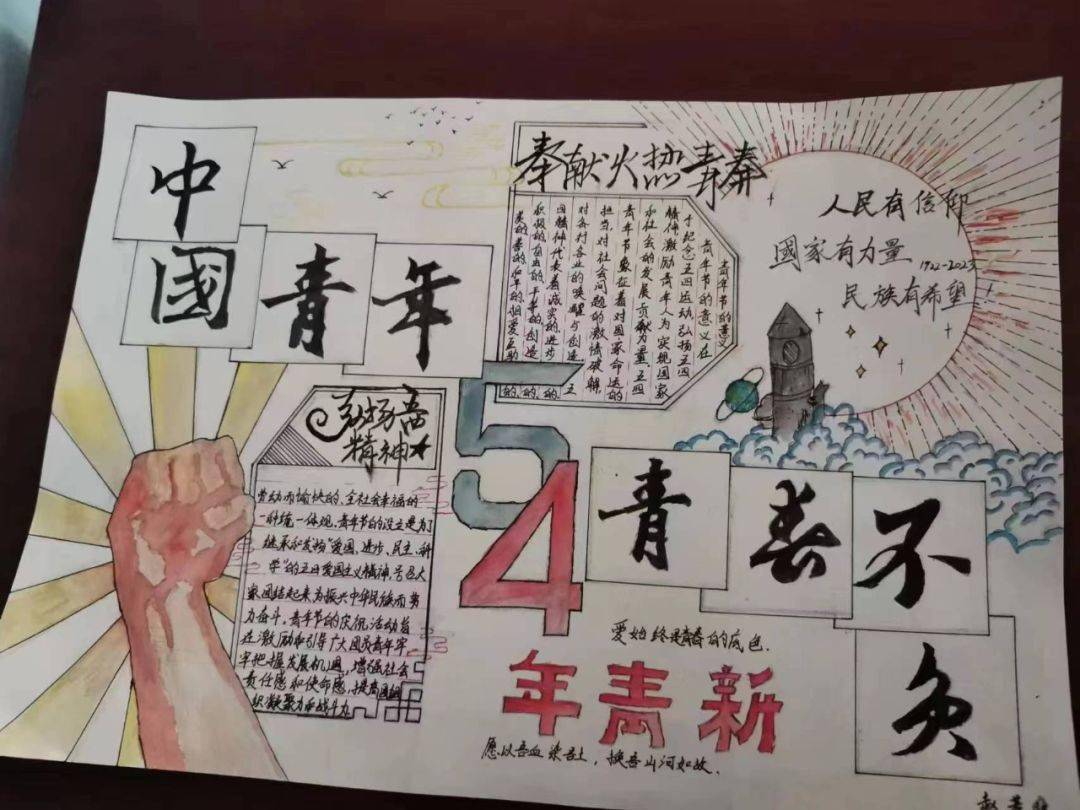 中
國青年
奉献火热青春
青年节的意义
青年节的意义在
于纪念五四运动,弘扬五四
精神,激励青年人为实现国家
和社会的发展贡献力量,五四
青年节象征着对国家命运的
担当,对社会问题的激情破解,
对各行各业的唤醒与创造 五
四精神代表着诚实的,进步的,
积极的,自由的,平等的,创造的,
美的,善的,和平的,相爱互助的,
人民有信仰
國家有力量
1922-2023
民族有希望
弘扬
精神
劳动而愉快的,全社会幸福的
一种统一体现,青年节的设立是为了
继承和发扬“爱国、进步、民主、科
学”的五四爱国主义精神,号召大
家团结起来为振兴中华民族而努
力奋斗。青年节的庆祝活动旨
在激励和引导广大团员青年牢
牢把握发展机遇,增强社会
责任感和使命感,提高团组
织凝聚力和战斗力
54
青春不
灸
爱始终是青春的底色.
年青新
愿以吾血染吾土,换吾山河如故.